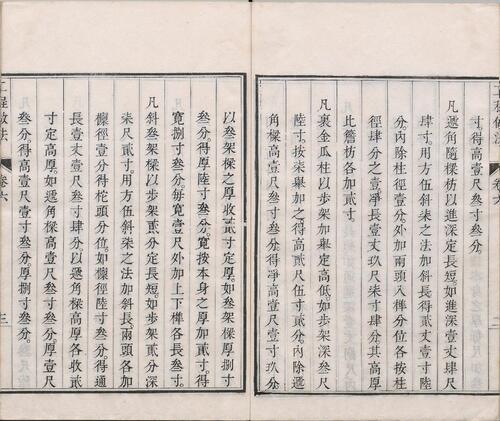 工程做法 卷六 二
寸。得高壹尺叁寸叁分。
凡遞角隨樑枋以進深定長短。如進深壹丈肆尺
肆寸。用方伍斜柒之法加斜長得貳丈壹寸陸
分。內除柱徑壹分。外加兩頭入榫分位。各按柱
徑肆分之壹。淨長壹丈玖尺柒寸肆分。其高厚
比簷枋各加貳寸。
凡裏金瓜柱以步架加舉定高低。如步架深叁尺
陸寸。按柒舉加之。得高貳尺伍寸貳分。內除遞
角樑高壹尺叁寸叁分。得淨高壹尺壹寸玖分。
以叁架樑之厚收貳寸定厚。如叁架樑厚捌寸
叁分。得厚陸寸叁分。寬按本身之厚加貳寸。得
寬捌寸叁分。每寬壹尺外加上下榫各長叁寸。
凡斜叁架樑以步架貳分定長短。如步架貳分深
柒尺貳寸。用方伍斜柒之法加斜長。兩頭各加
檁徑壹分得柁頭分位。如檁徑陸寸叁分。得通
長壹丈壹尺叁寸肆分。以遞角樑高厚各收貳
寸定高厚。如遞角樑高壹尺叁寸叁分。厚壹尺
叁分。得高壹尺壹寸叁分。厚捌寸叁分。
工程做法 卷六 三